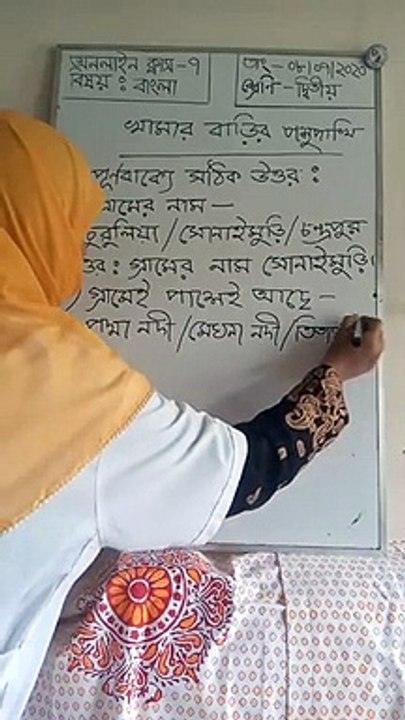 অনলাইন ক্লাস-৭
বিষয় : বাংলা
তাং-০৮/০৭/২০২০
শ্রেণি-দ্বিতীয়
খামার বাড়ির পশুপাখি
পূর্ণবাক্যে সঠিক উত্তর :
নাম —
/সোনাইমুড়ি/চন্দ্রপুর
গ্রামের নাম সোনাইমুড়ি।
গ্রামেই পাশেই আছে —
পদ্মা নদী/মেঘনা নদী/